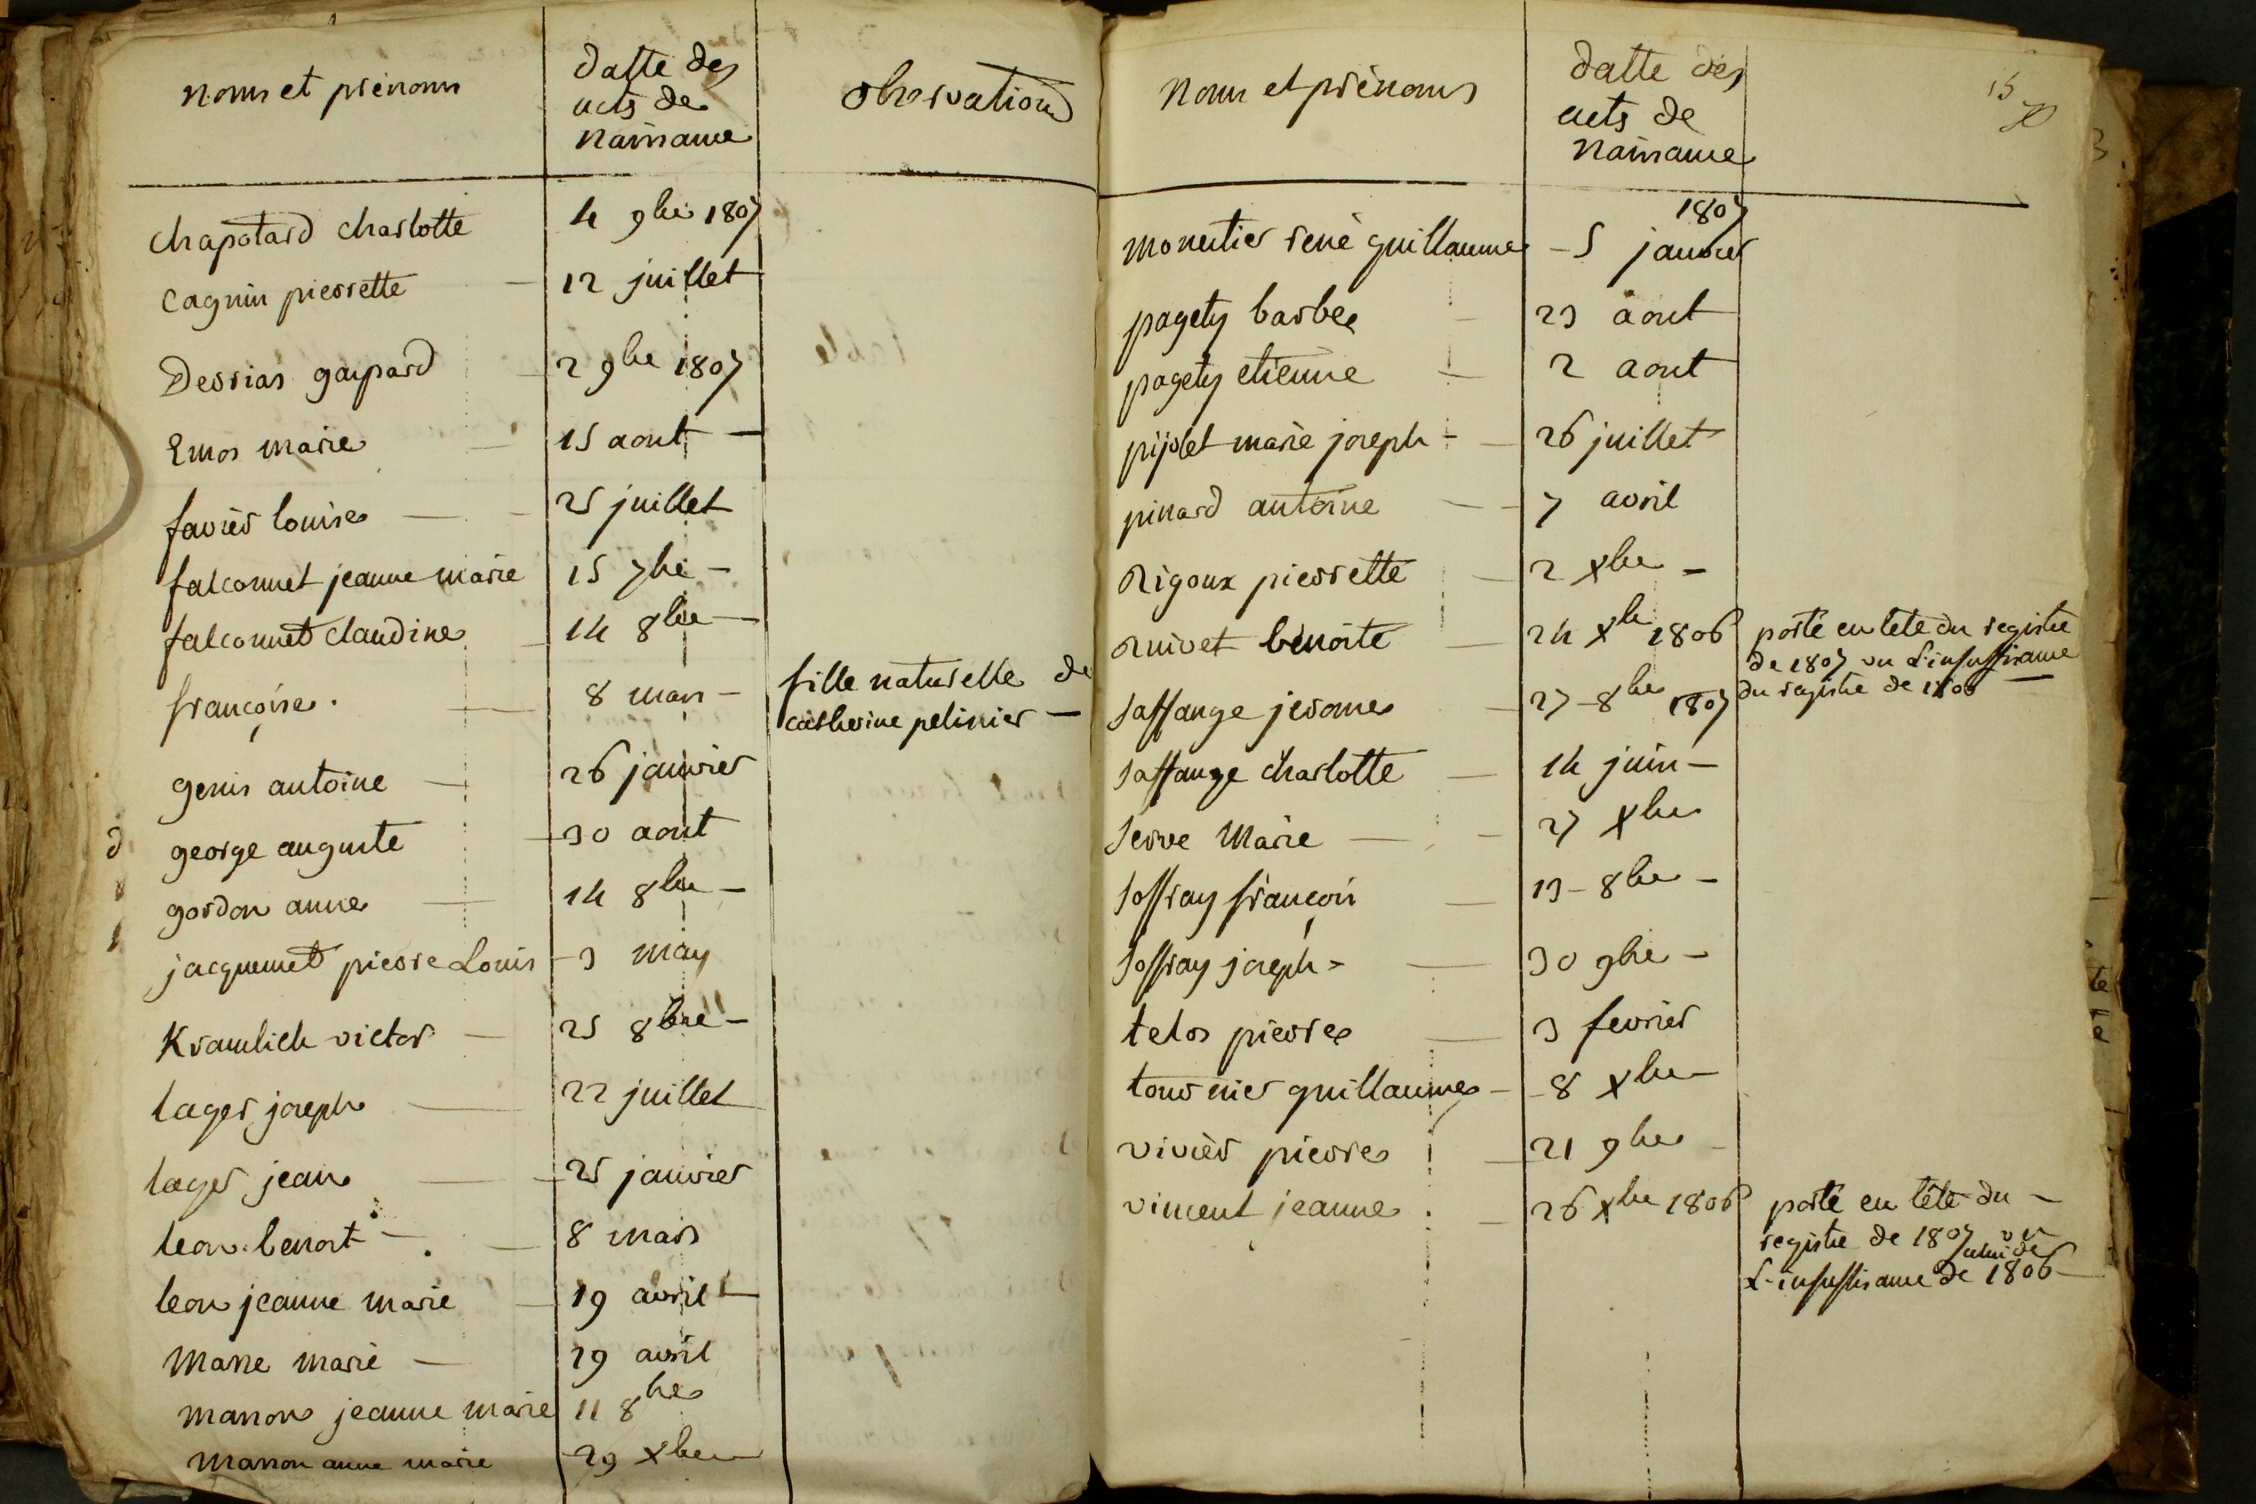 noms et prénoms
datte des
acts de
naissance
observations
chapotard charlotte 4 9bre 1807
cagnin pierrette 12 juillet
Dessias gaspard 2 9bre 1807
Emos marie 15 aout
favier louise 25 juillet
falconnet jeanne marie 15 7bre
falconnet claudine 14 8bre
françoise 8 mars fille naturelle de
catherine pelinier
genis antoine 26 janvier
george auguste 30 aout
gordon anne 14 8bre
jacquemet pierre Louis 3 may
Kramlich victor 25 8bre
lager joseph 22 juillet
lager jean 25 janvier
leon benoit 8 mars
leon jeanne marie 19 avril
Masse marie 29 avril
masson jeanne marie 11 8bre
masson anne marie 29 Xbre
15
Noms et prénoms
datte des
acts de
naissance
1807
monestier rené guillaume 5 janvier
pagety barbe 23 aout
pagety etienne 2 aout
pijolet marie joseph 26 juillet
pinard antoine 7 avril
Rigoux pierrette 2 Xbre
Rnivet benoite 24 Xbre 1806 porté en tete du registre
de 1807 vu L'insuffisance
du registre de 1806
saffange jerome 27 8bre 1807
saffange charlotte 14 juin
serve Marie 27 Xbre
soffray françois 13 8bre
soffray joseph 30 9bre
telos pierre 3 fevrier
tournier guillaume 8 Xbre
vivier pierre 21 9bre
vincent jeanne 26 Xbre 1806 porté en tête du
registre de 1807 vu
L'insuffisance celui de de 1806